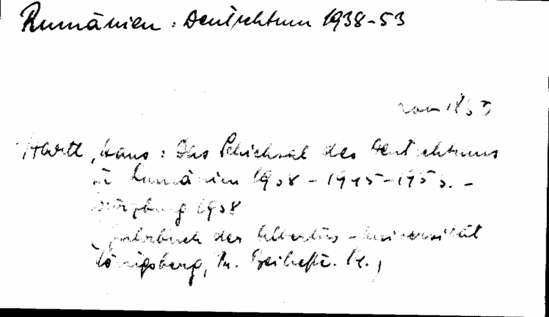 Rumänien: Deutschtum 1938-53
Hartl, Hans: Das Schicksal des Deutschtums
in Rumänien 1938-1945-1953.-
Würzburg 1958
(Jahrbuch der Albertus-Universität
Königsberg, Pr. Beihefte.